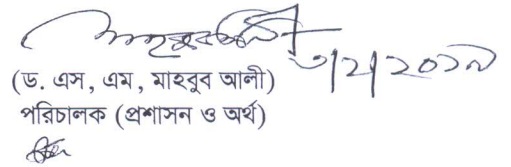 ৩/২/২০১৯
(ড. এস, এম, মাহবুব আলী)
পরিচালক (প্রশাসন ও অর্থ)